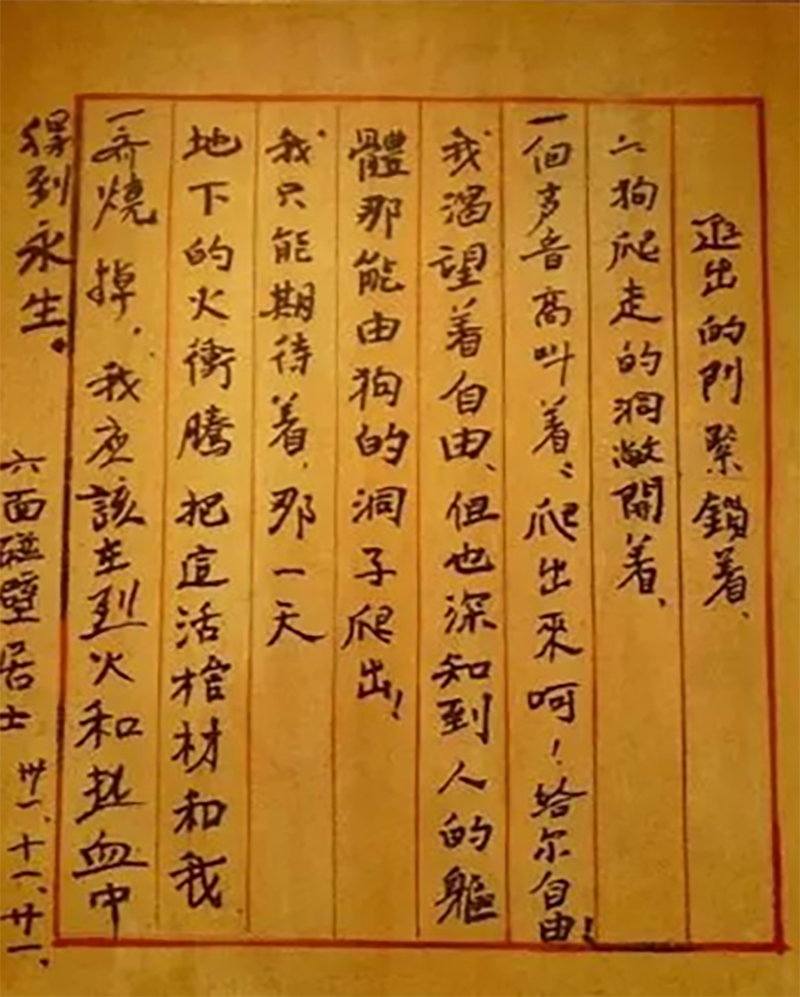 進出的門緊鎖着、
狗爬走的洞敞開着、
一個声音高叫着：爬出來呵！給尔自由！
我渴望着自由、但也深知到人的軀
體那能由狗的洞子爬出！
我只能期待着、那一天
地下的火衝騰把這活棺材和我
一齊燒掉，我应該在烈火和热血中
得到永生。
六面碰壁居士 卅一、十一、廿一、